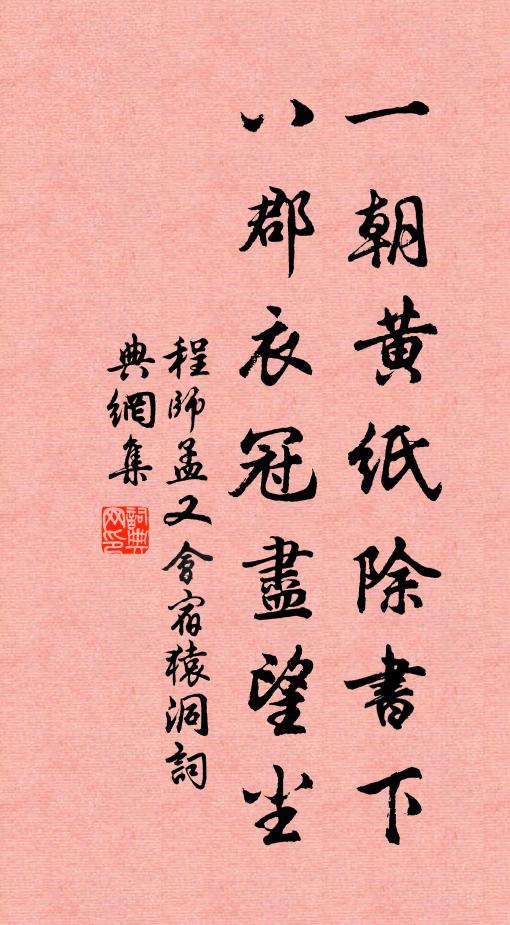 一朝黄紙除書下
八郡衣冠盡望尘
程師孟又會宿猿洞詞
典網集
詞典網印